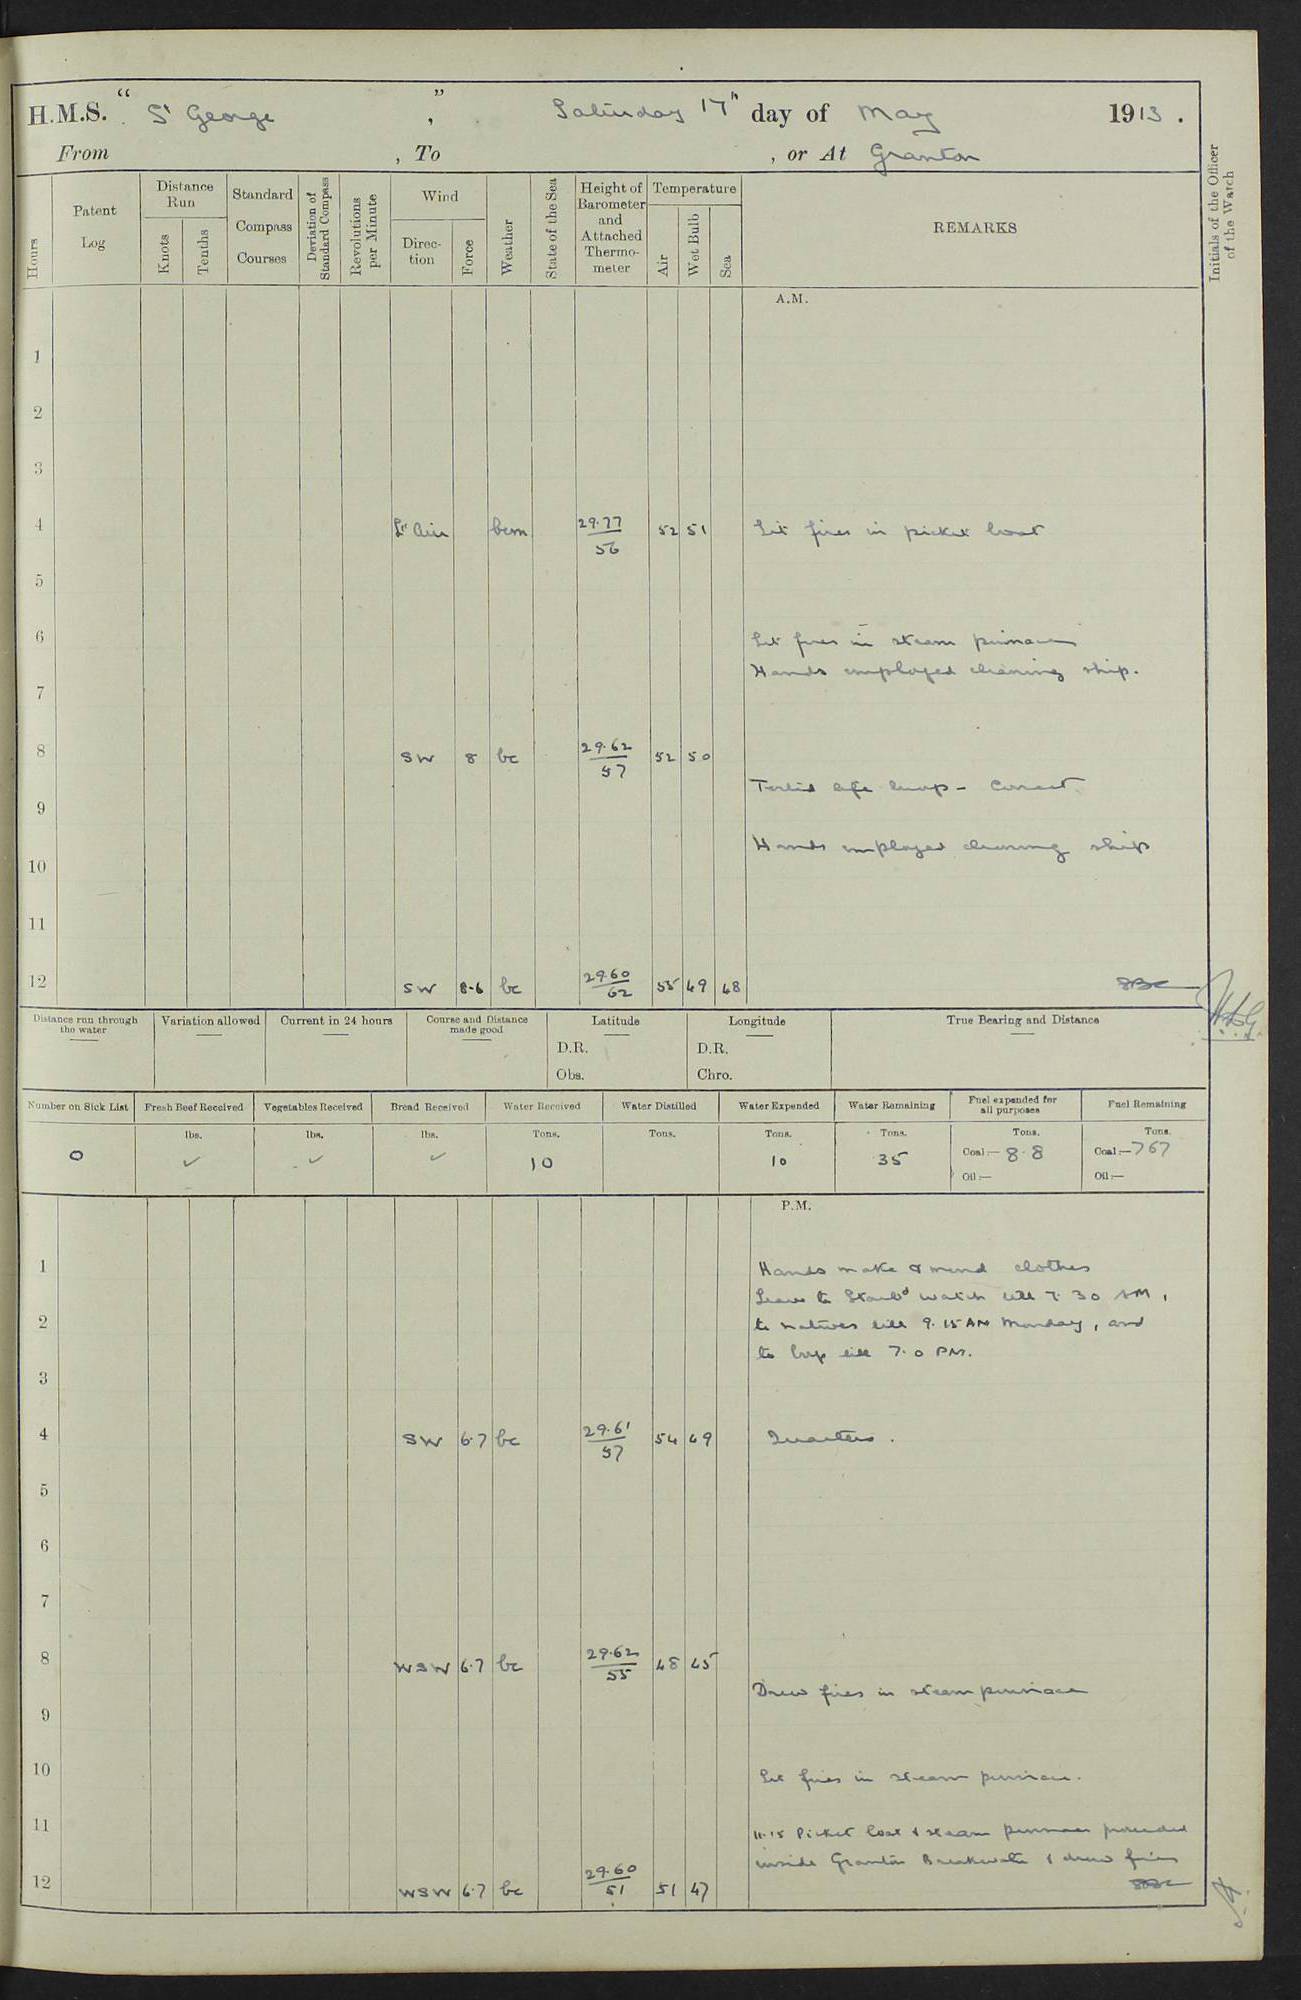 H.M.S. “ St George ” , Saturday 17th day of May 1913 .
From , To , or At Granton
Hours
Patent Log
Distance Run
Knots
Tenths
Standard Compass Courses
Deviation of Standard Compass
Revolutions per Minute
Wind
Direc-tion
Force
Weather
State of the Sea
Height of Barometer and Attached Thermo-meter
Temperature
Air
Wet Bulb
Sea
REMARKS
Initials of the Officer of the Watch
A.M.
1
2
3
4 Lt Airs bcm 29.77/56 52 51 Lit fires in picket boat
5
6 Lit fires in steam pinnace
Hands employed cleaning ship.
7
8 SW 8 bc 29.62/57 52 50
Tested life buoys - Correct.
9
Hands employed cleaning ship
10
11
12 SW 8.6 bc 29.60/62 55 49 48
Distance run through the water
Variation allowed
Current in 24 hours
Course and Distance made good
Latitude
D.R.
Obs.
Longitude
D.R.
Chro.
True Bearing and Distance
Number on Sick List
Fresh Beef Received
Vegetables Received
Bread Received
Water Received
Water Distilled
Water Expended
Water Remaining
Fuel expended for all purposes
Fuel Remaining
lbs. lbs. lbs. Tons. Tons. Tons. Tons. Tons. Tons.
0 ✓ ✓ ✓ 10 10 35 Coal:— 8.8 Coal:— 767
Oil:— Oil:—
P.M.
1 Hands make & mend clothes
Leave to Starbd watch till 7.30 AM,
2 to natives till 9.15 AM Monday, and
to boys till 7.0 PM.
3
4 SW 6.7 bc 29.61/57 54 49 Quarters.
5
6
7
8 WSW 6.7 bc 29.62/55 48 45
Drew fires in steam pinnace
9
10 Lit fires in steam pinnace.
11 11.15 Picket boat & steam pinnace proceeded
inside Granton Breakwater & drew fires
12 WSW 6.7 bc 29.60/51 51 47